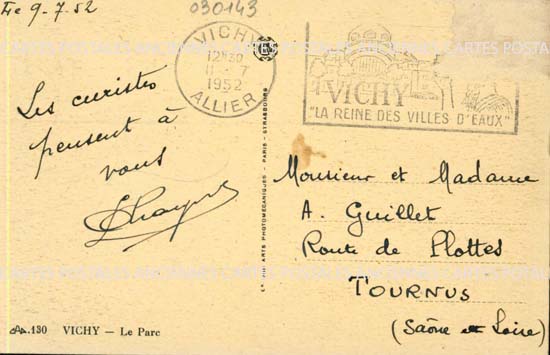 Le 9-7.52
030143
VICHY
12H30
11-7
1952
ALLIER
VICHY
"LA REINE DES VILLES D'EAUX"
Les curistes
pensent à
vous
Monsieur et Madame
A. Guillet
Route de Plottes
TOURNUS
(Saône et Loire)
ARTS PHOTOMECANIQUES - PARIS - STRASBOURG
130 VICHY — Le Parc